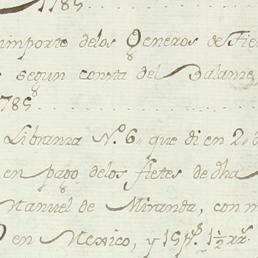 1785
importe delos Generos de
segun consta del Balance
1785
Libranza N.º 6. que di en 2. d
en pago delos fletes de dha
Manuel de Miranda, con m
en Mexico, y 19 p.s 1½ rr.s